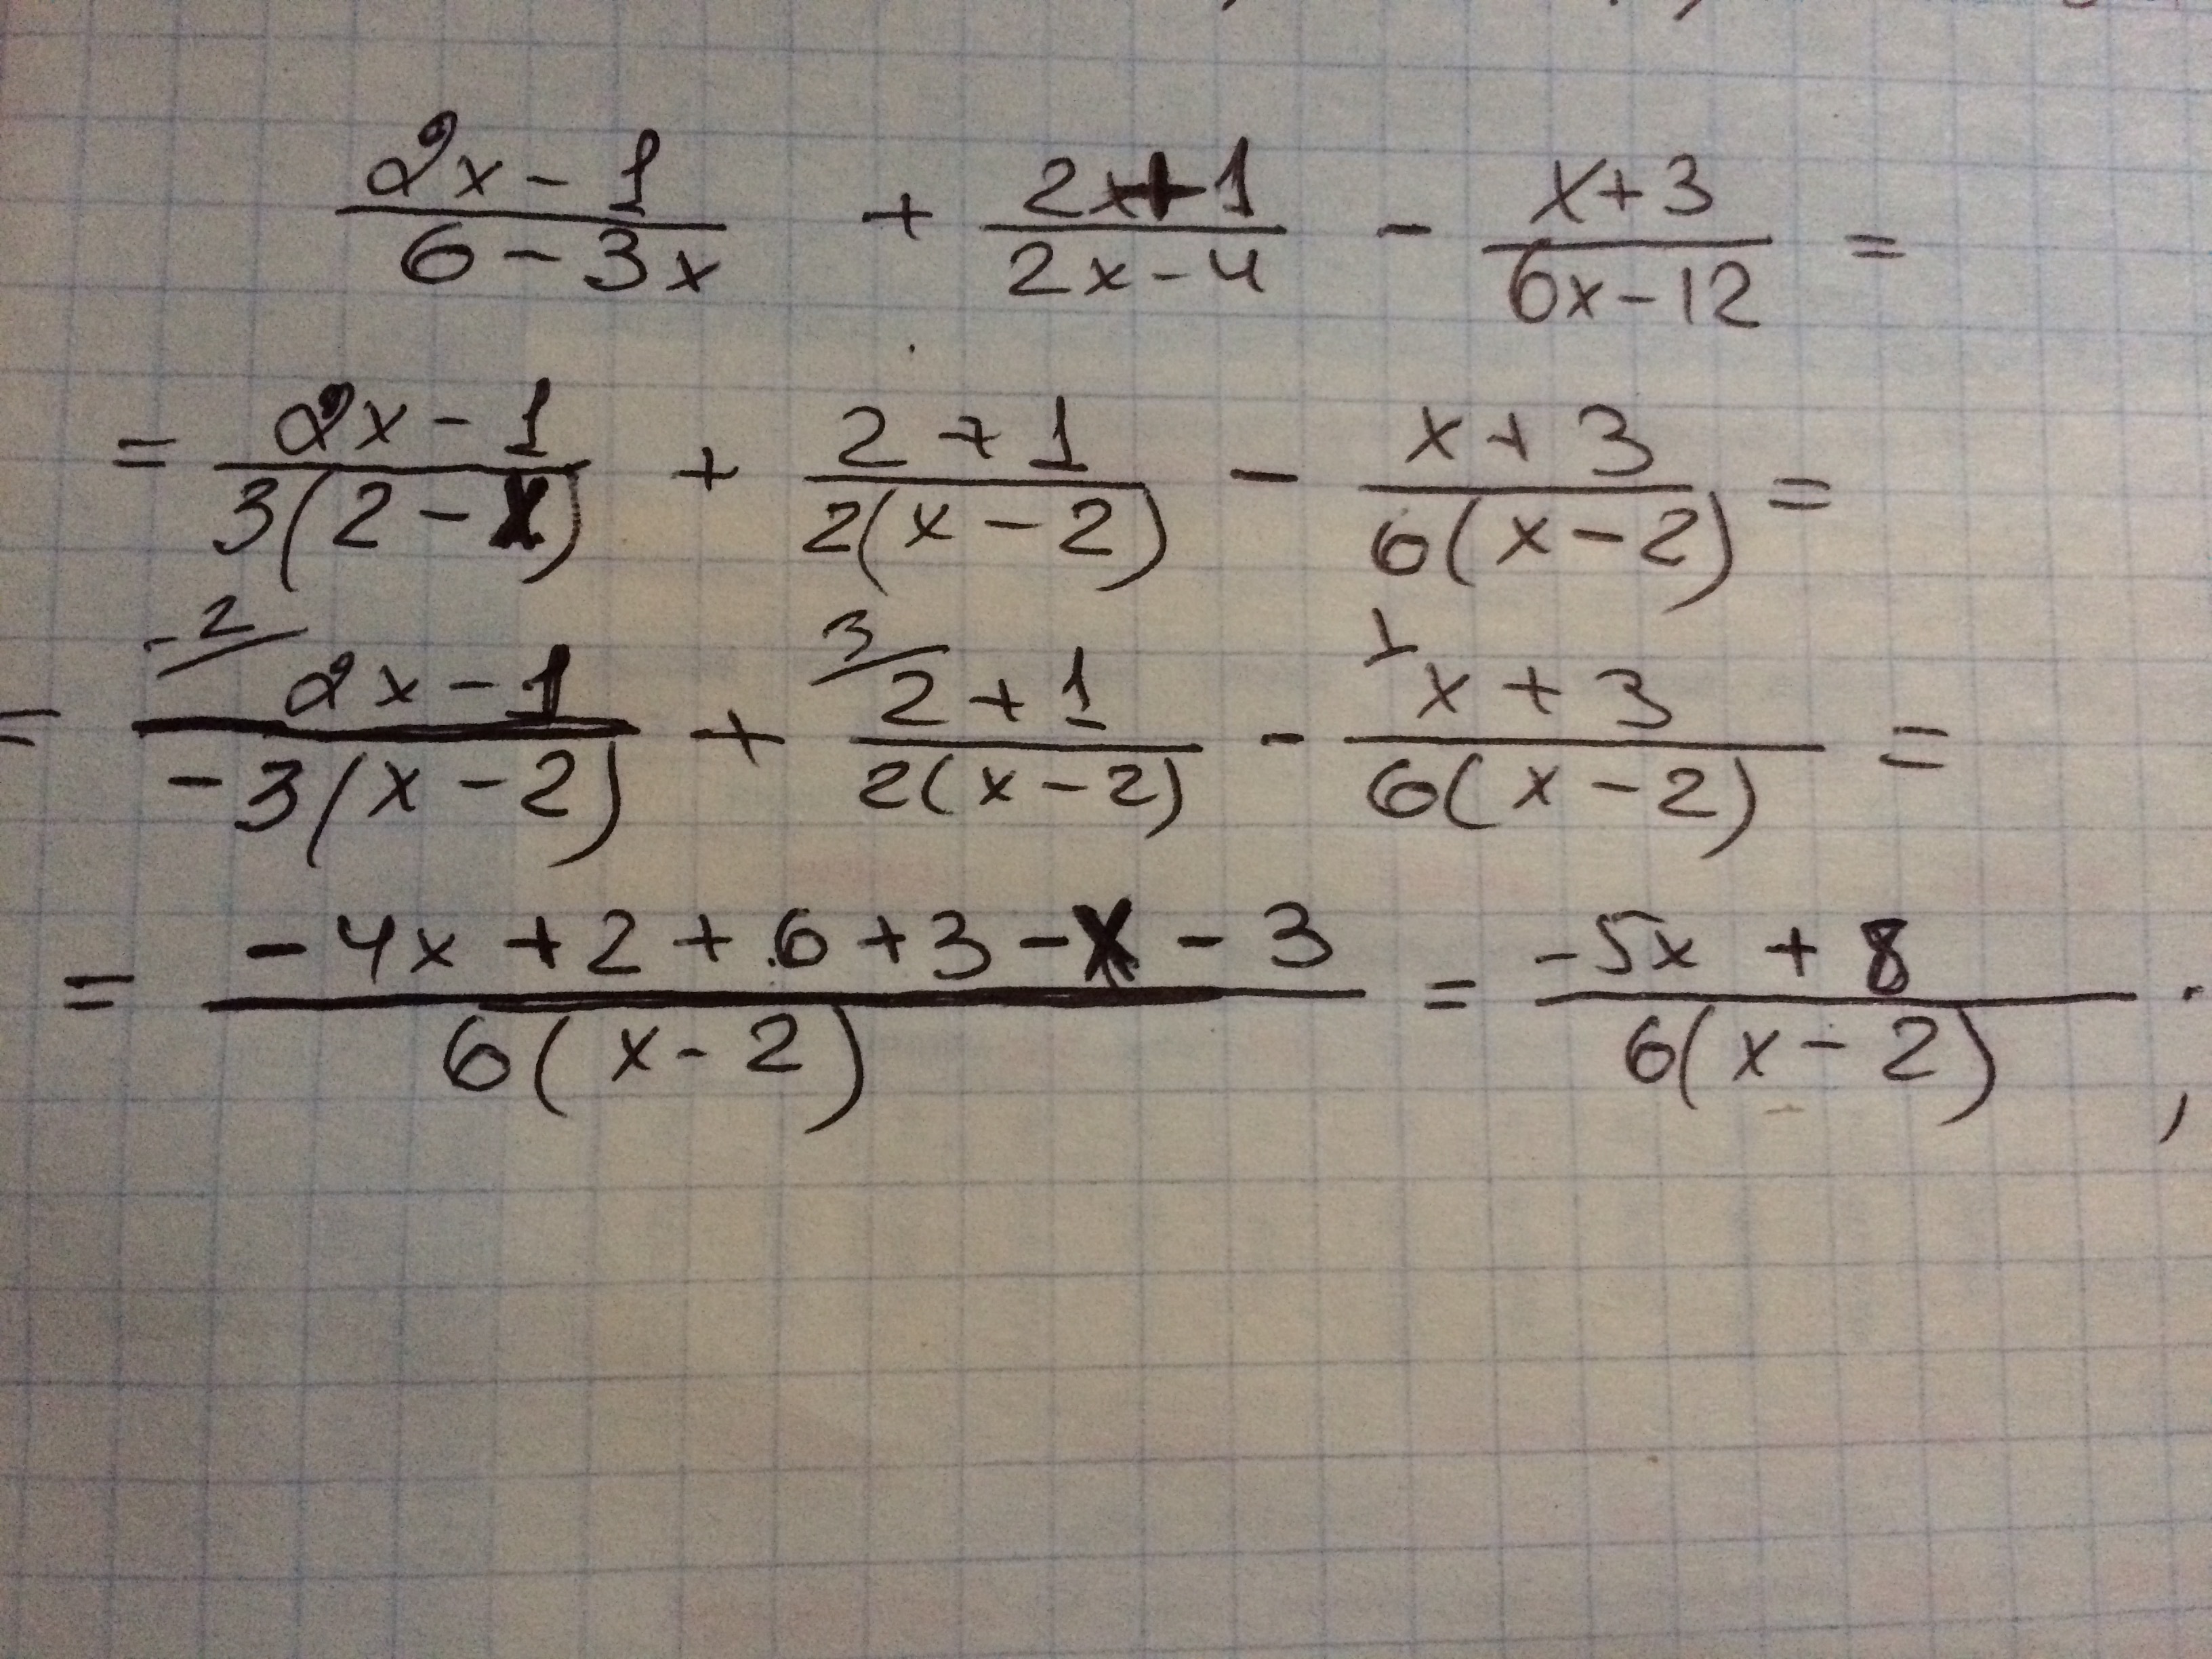 (2x-1)/(6-3x) + (2x+1)/(2x-4) - (x+3)/(6x-12) =
= (2x-1)/(3(2-x)) + (2+1)/(2(x-2)) - (x+3)/(6(x-2)) =
= -2/ (2x-1)/(-3(x-2)) + 3/ (2+1)/(2(x-2)) - 1/ (x+3)/(6(x-2)) =
= (-4x+2+6+3-x-3)/(6(x-2)) = (-5x+8)/(6(x-2)) ;